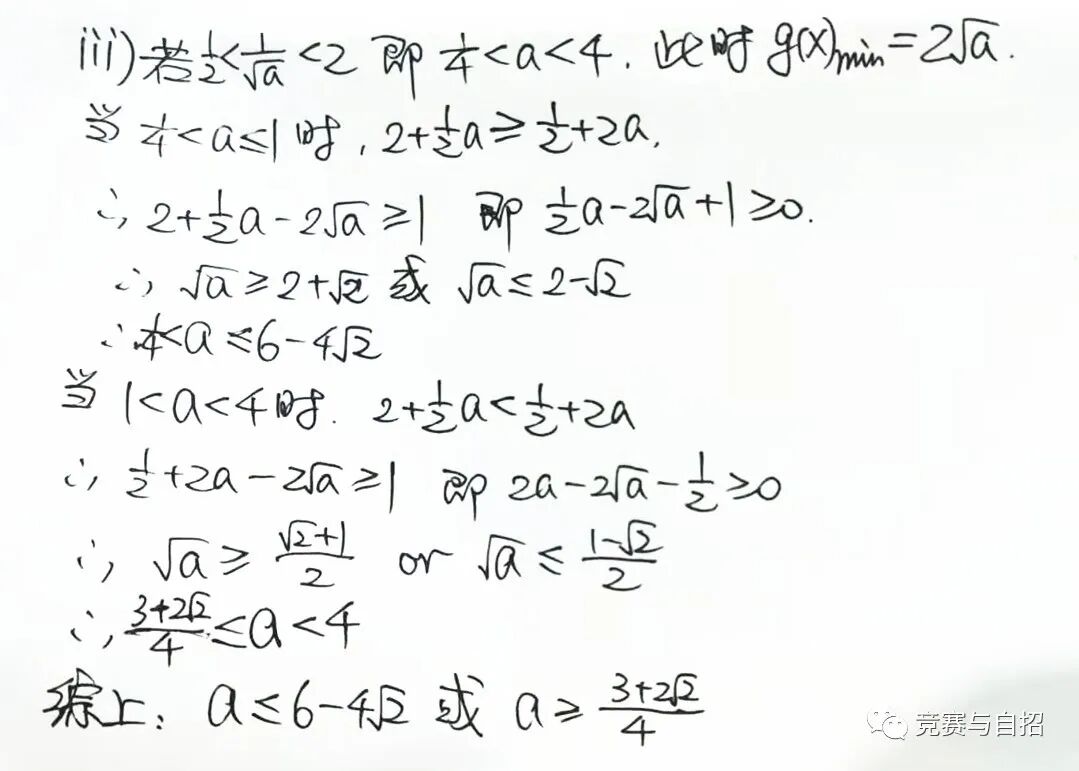 iii) 若 1/2 < 1/√a < 2 即 1/4 < a < 4. 此时 g(x)min = 2√a.
当 1/4 < a ≤ 1 时, 2 + 1/2 a ≥ 1/2 + 2a.
∴ 2 + 1/2 a - 2√a ≥ 1 即 1/2 a - 2√a + 1 ≥ 0.
∴ √a ≥ 2 + √2 或 √a ≤ 2 - √2
∴ 1/4 < a ≤ 6 - 4√2
当 1 < a < 4 时. 2 + 1/2 a < 1/2 + 2a
∴ 1/2 + 2a - 2√a ≥ 1 即 2a - 2√a - 1/2 ≥ 0
∴ √a ≥ (√2 + 1)/2 or √a ≤ (1 - √2)/2
∴ (3 + 2√2)/4 ≤ a < 4
综上: a ≤ 6 - 4√2 或 a ≥ (3 + 2√2)/4
竞赛与自招